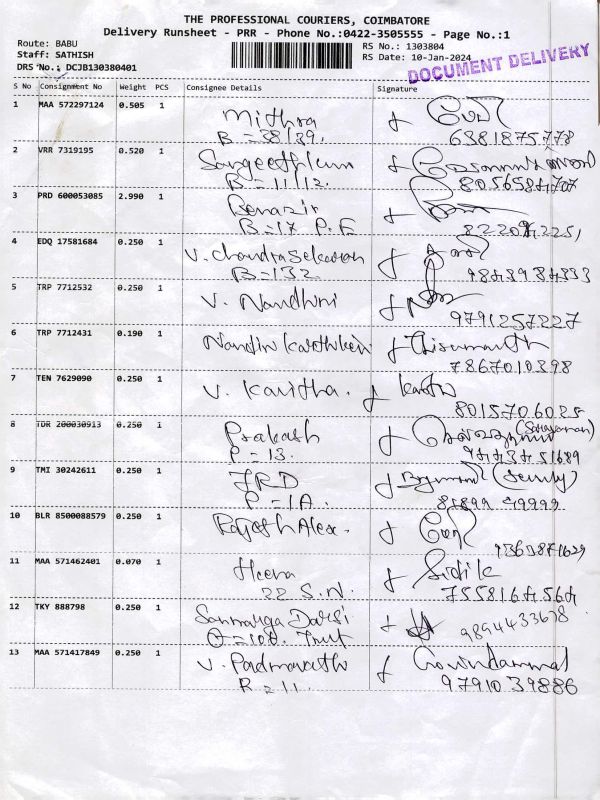 THE PROFESSIONAL COURIERS, COIMBATORE
Delivery Runsheet - PRR - Phone No.:0422-3505555 - Page No.:1
Route: BABU
RS No.: 1303804
Staff: SATHISH
RS Date: 10-Jan-2024
DRS No.: DCJB130380401
DOCUMENT DELIVERY
S No Consignment No Weight PCS Consignee Details Signature
1 MAA 572297124 0.505 1 Mithra
B = 38/39. 6381875778
2 VRR 7319195 0.520 1
B = 11/12.
3 PRD 600053085 2.990 1 Benazir
B = 17 P.E
4 EDQ 17581684 0.250 1 V. Chandra Sekaran
B = 132. 9843984333
5 TRP 7712532 0.250 1 V. Nandhini
9791257227
6 TRP 7712431 0.190 1 Nandini
7867010398
7 TEN 7629090 0.250 1 V. Kavitha.
8015706025
8 TDR 200030913 0.250 1 Prakash
P = 13. 9443451689
9 TMI 30242611 0.250 1 JRD
P = 1A.
10 BLR 8500088579 0.250 1 Rajesh Alex.
11 MAA 571462401 0.070 1 Heena
22 S.N. 7558164564
12 TKY 888798 0.250 1 Sanmarga 9894433678
Trust
13 MAA 571417849 0.250 1 V. Padmavathi Govindammal
B = 11. 9791039886